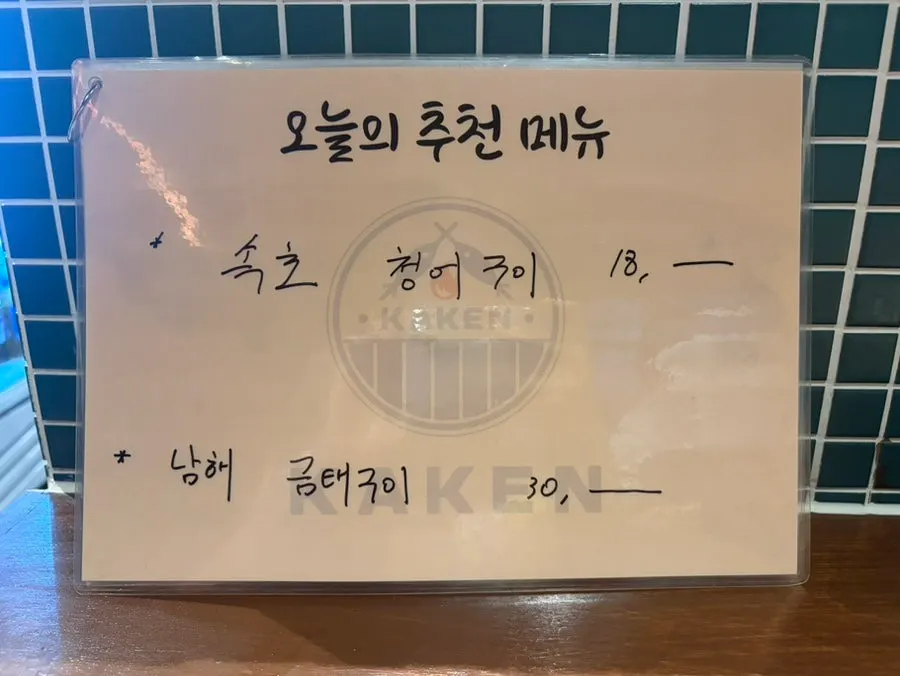 오늘의 추천 메뉴
* 속초 청어구이 18,—
KAKEN
* 남해 금태구이 30,—
KAKEN